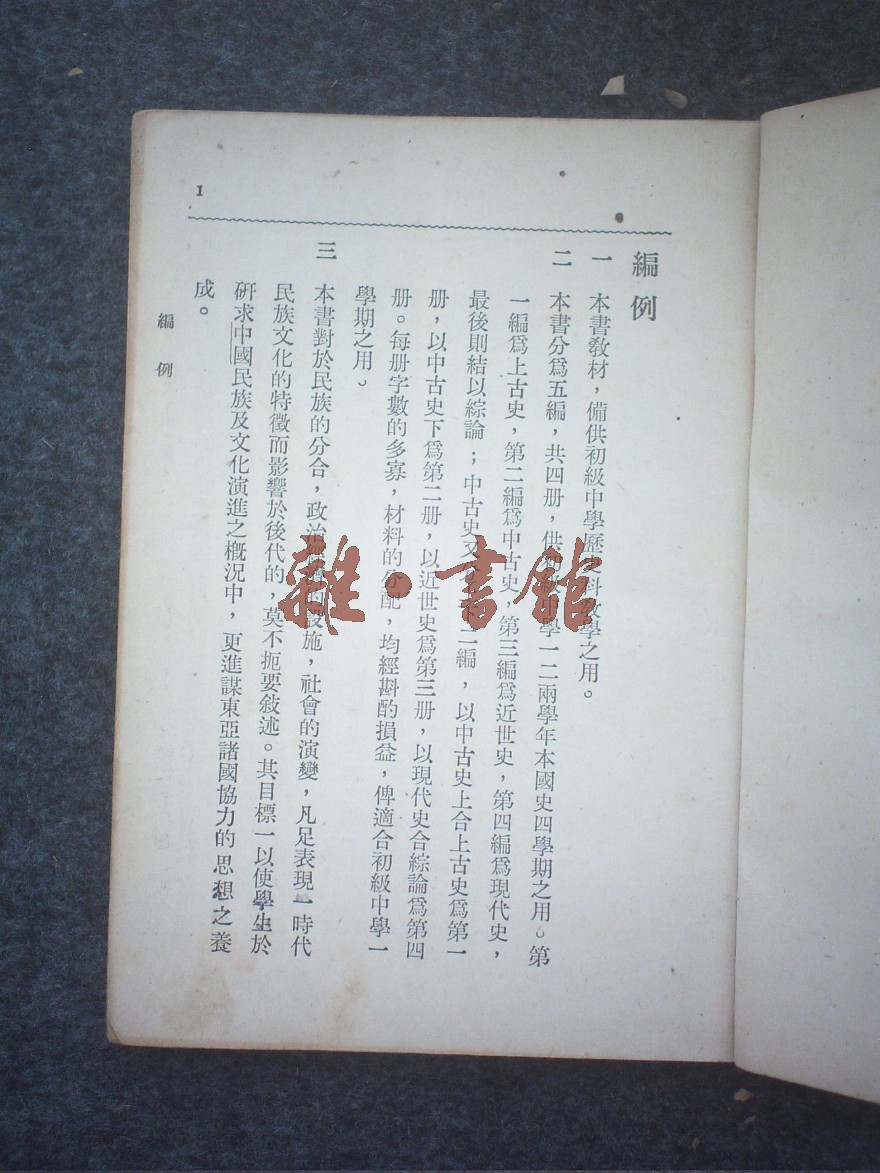 編例
一 本書教材，備供初級中學歷史科教學之用。
二 本書分爲五編，共四册，供初級中學一二兩學年本國史四學期之用。第
一編爲上古史，第二編爲中古史，第三編爲近世史，第四編爲現代史，
最後則結以綜論；中古史又 二編，以中古史上合上古史爲第一
册，以中古史下爲第二册，以近世史爲第三册，以現代史合綜論爲第四
册。每册字數的多寡，材料的分配，均經斟酌損益，俾適合初級中學一
學期之用。
三 本書對於民族的分合，政治 設施，社會的演變，凡足表現一時代
民族文化的特徵而影響於後代的，莫不扼要敍述。其目標一以使學生於
研求中國民族及文化演進之槪況中，更進謀東亞諸國協力的思想之養
成。
編例
1
雜·書館